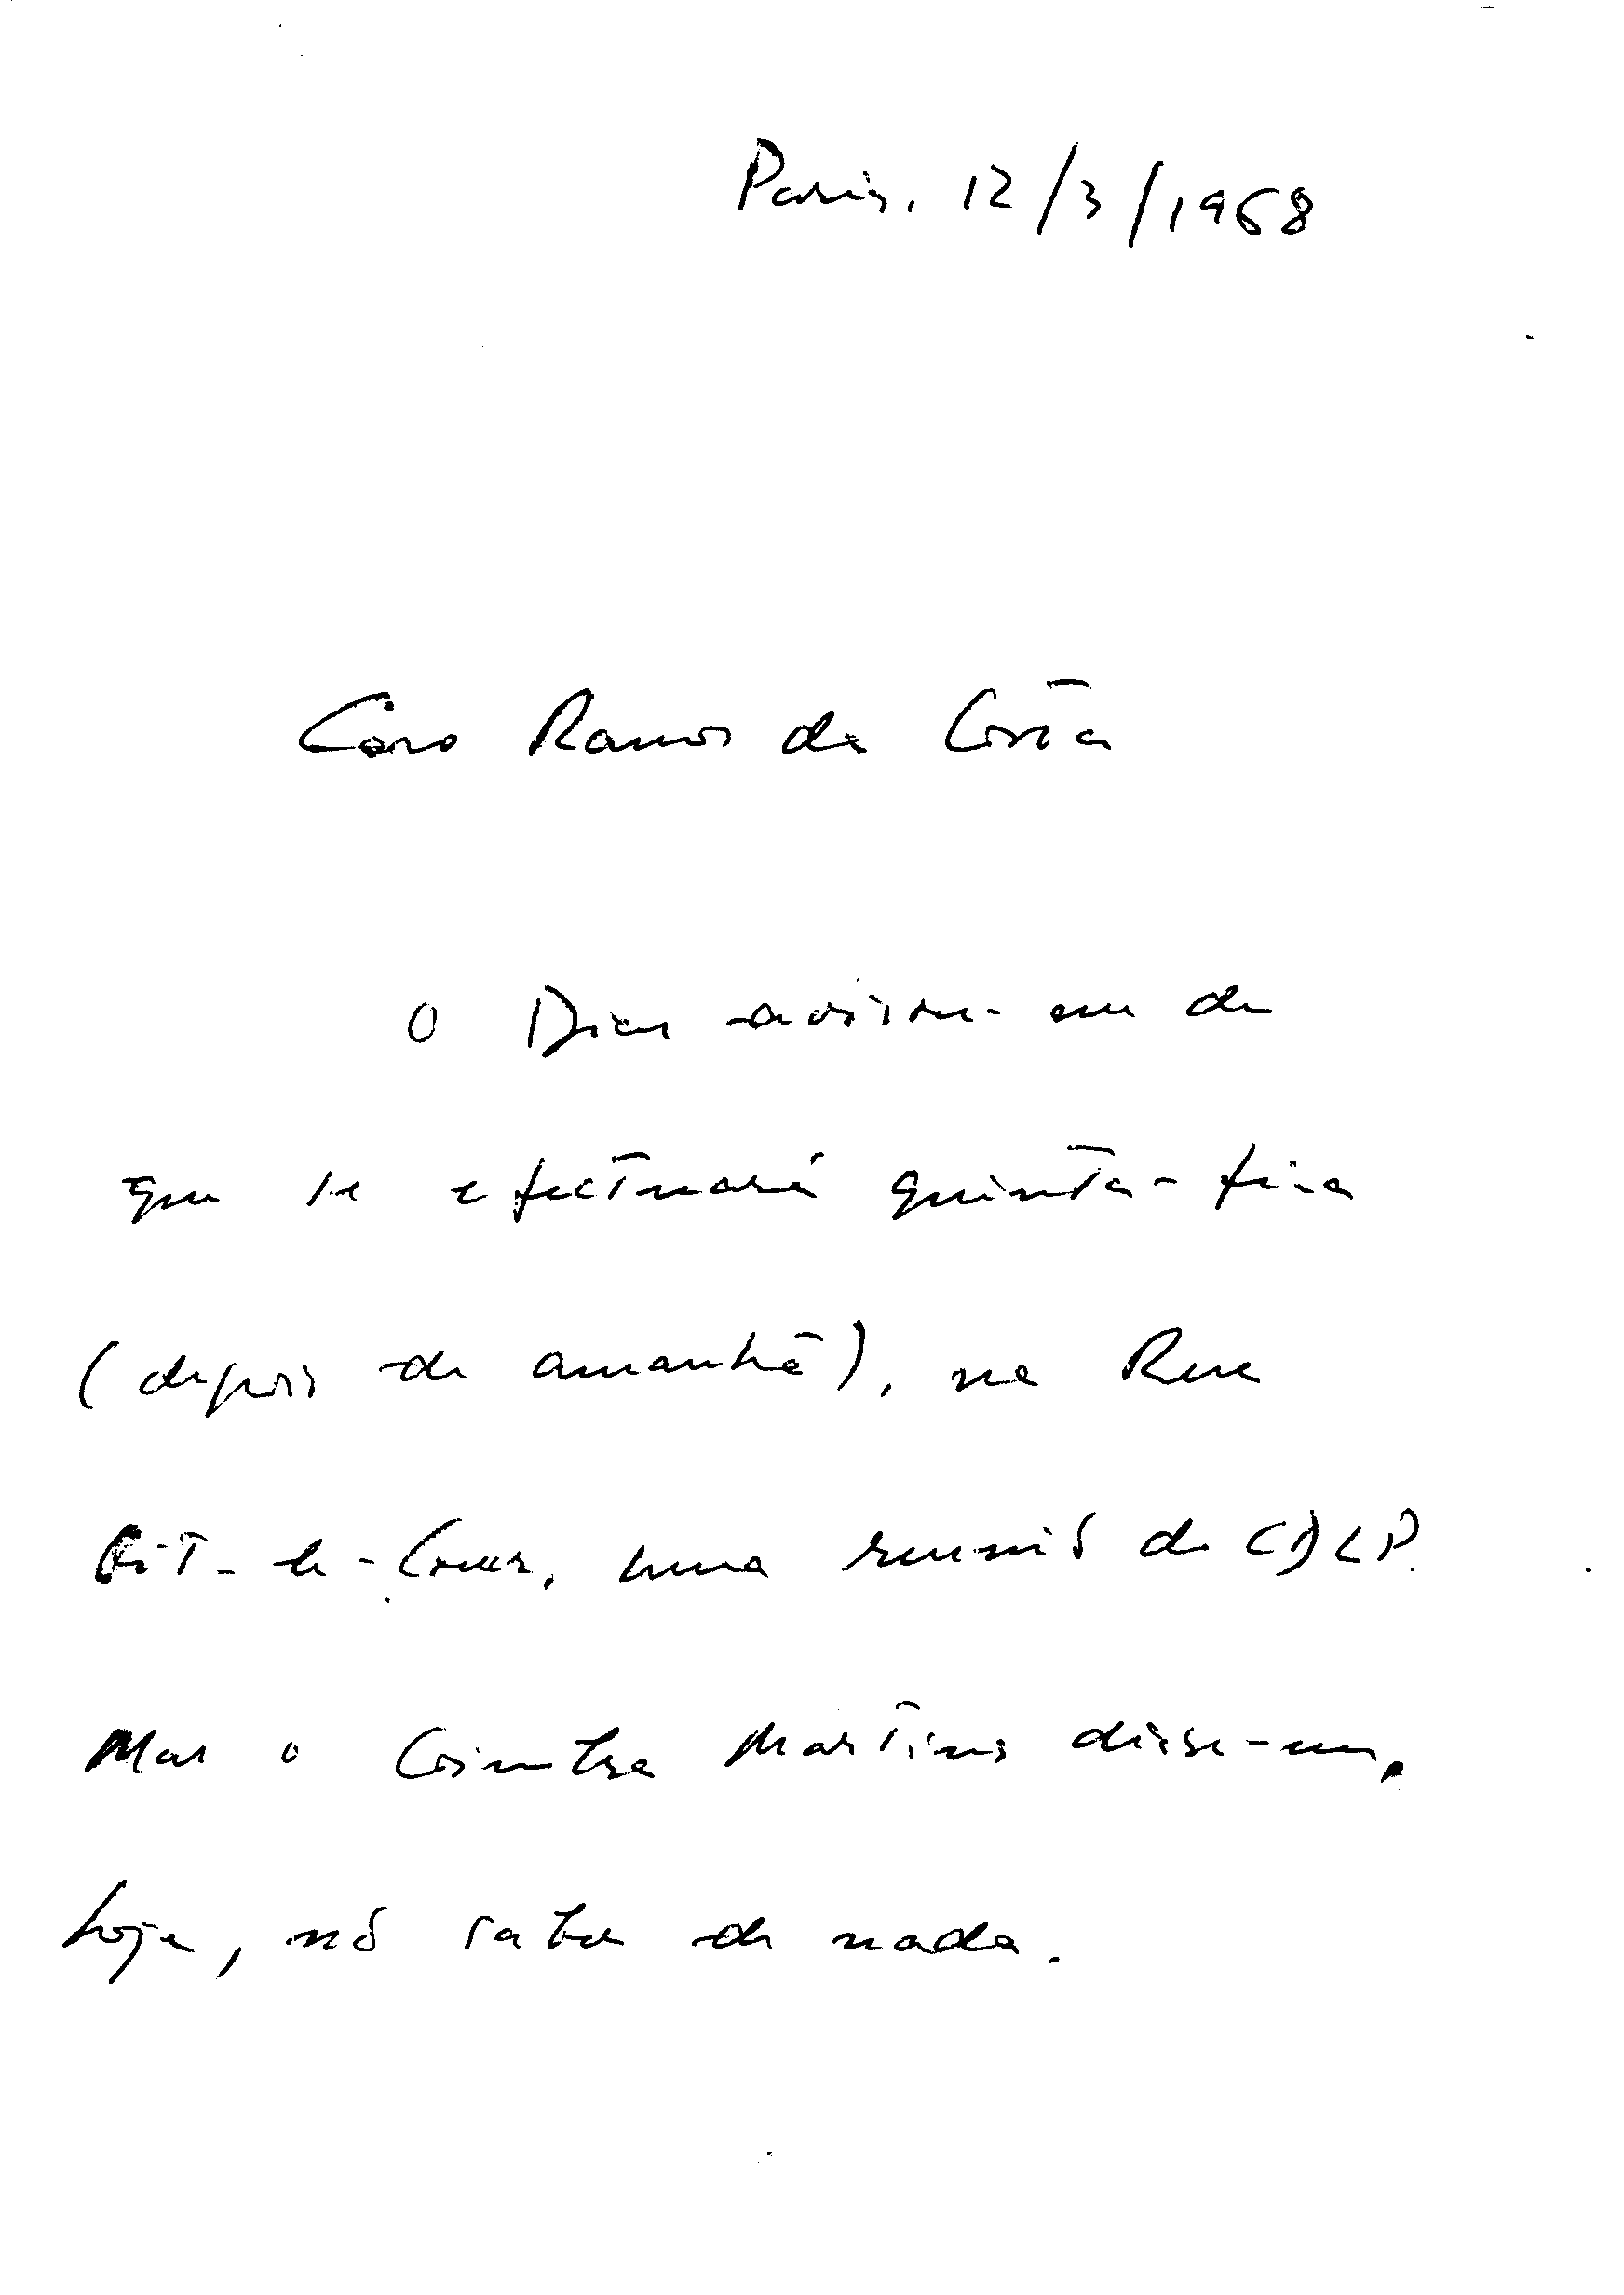 Paris, 12/3/1968
Caro Ramos da Costa
O Dias avisou-me de
que se efectuará quinta-feira
(depois de amanhã), na Rue
Gît-le-Cœur, uma reunião da CDLP.
Mas o Coimbra Martins disse-me,
hoje, não saber de nada.